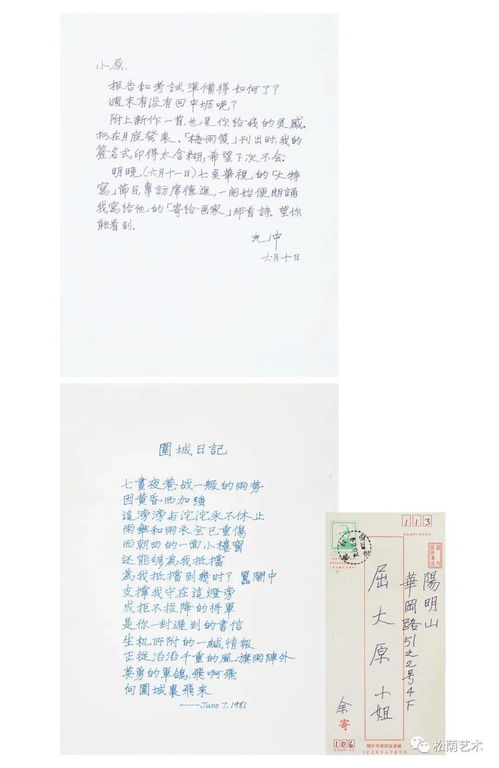 小原,
报告和考試準備得如何了?
週末有沒有回中坜呢?
附上新作一首,也是你给我的灵感.
将在月底發表.「梅雨笺」刊出时,我的
簽名式印得太含糊,希望下次不会.
明晚(六月十一日)七点華視的「大特
寫」節目專訪席德進,一開始便朗誦
我寫给他的「寄给画家」那首詩.望你
能看到.
光中
六月十日
圍城日記
七晝夜巷战一般的雨勢
因黄昏而加強
這滂滂与沱沱永不休止
雨傘和雨衣全已重傷
而朝西的一面小樓窗
还能够為我抵擋
為我抵擋到幾时?驚閙中
支撐我守在這燈旁
成拒不投降的将軍
是你一封遲到的書信
生机所附的一緘情報
正從滔滔千重的風旗雨陣外
英勇的軍鴿,飛啊飛
向圍城裏飛來
——June 7, 1981
113
陽明山
華岡路51之2号4F
屈大原小姐
余寄
106
松荫艺术